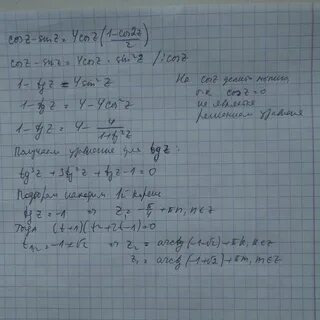 cosz-sinz=4cosz(1-cos2z/2)
cosz-sinz=4cosz·sin²z /:cosz
1-tgz=4sin²z
На cosz делить можно
1-tgz=4-4cos²z
т.к. cosz=0
не является
1-tgz=4-4/1+tg²z
решением уравнения
Получаем уравнение для tgz:
tg³z+3tg²z+tgz-1=0
Подбором находим 1й корень
tgz=-1 => z₁=-π/4+πn, n∈Z
Тогда (t+1)(t²+2t-1)=0
t₁,₂=-1±√2 => z₂=arctg(-1-√2)+πk, k∈Z
z₃=arctg(-1+√2)+πm, m∈Z